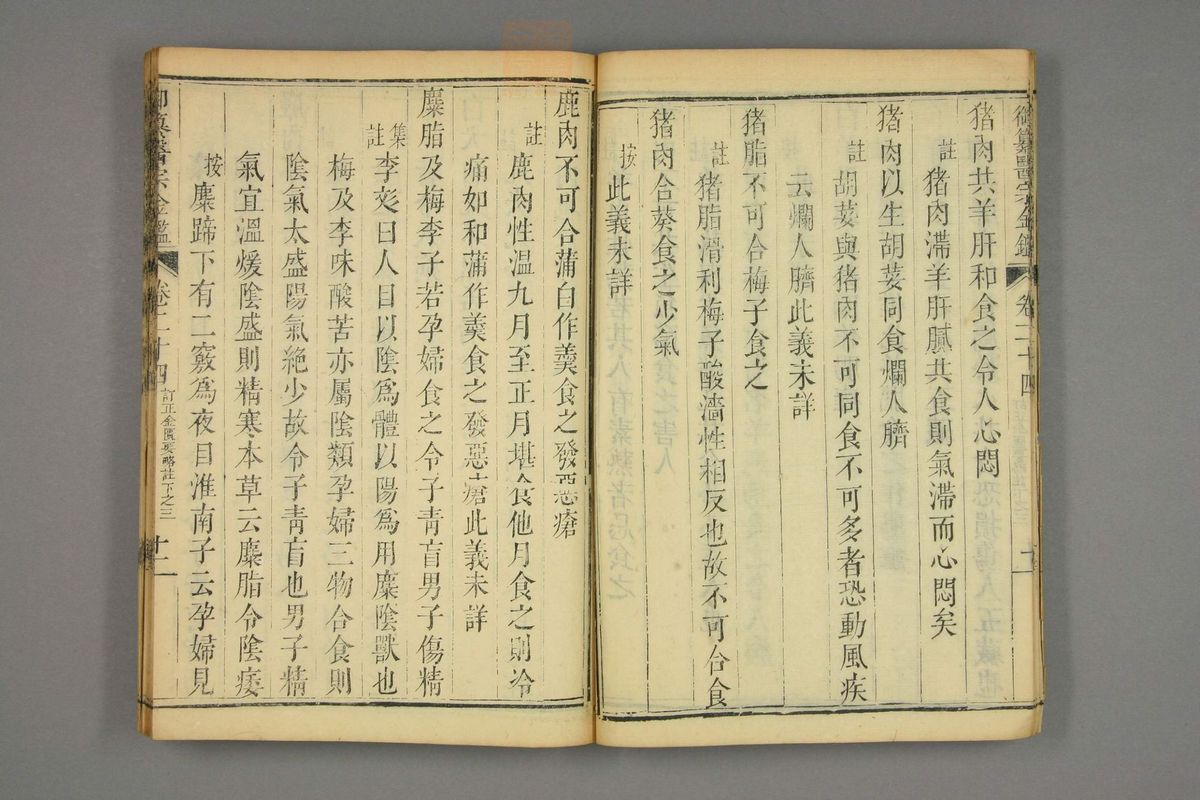 御纂醫宗金鑑 卷二十四
猪肉共羊肝和食之令人心悶
註猪肉滯羊肝膩共食則氣滯而心悶矣
猪肉以生胡荽同食爛人臍
註胡荽與猪肉不可同食不可多者恐動風疾
云爛人臍此義未詳
猪脂不可合梅子食之
註猪脂滑利梅子酸濇性相反也故不可合食
猪肉合葵食之少氣
按此義未詳
鹿肉不可合蒲白作羹食之發惡瘡
註鹿肉性溫九月至正月堪食他月食之則冷
痛如和蒲作羹食之發惡瘡此義未詳
麋脂及梅李子若孕婦食之令子青盲男子傷精
集註李彣曰人目以陰爲體以陽爲用麋陰獸也
梅及李味酸苦亦屬陰類孕婦三物合食則
陰氣太盛陽氣絶少故令子青盲也男子精
氣宜溫煖陰盛則精寒本草云麋脂令陰痿
按麋蹄下有二竅爲夜目淮南子云孕婦見
御纂醫宗金鑑 卷二十四 訂正金匱要略註下之三 十二